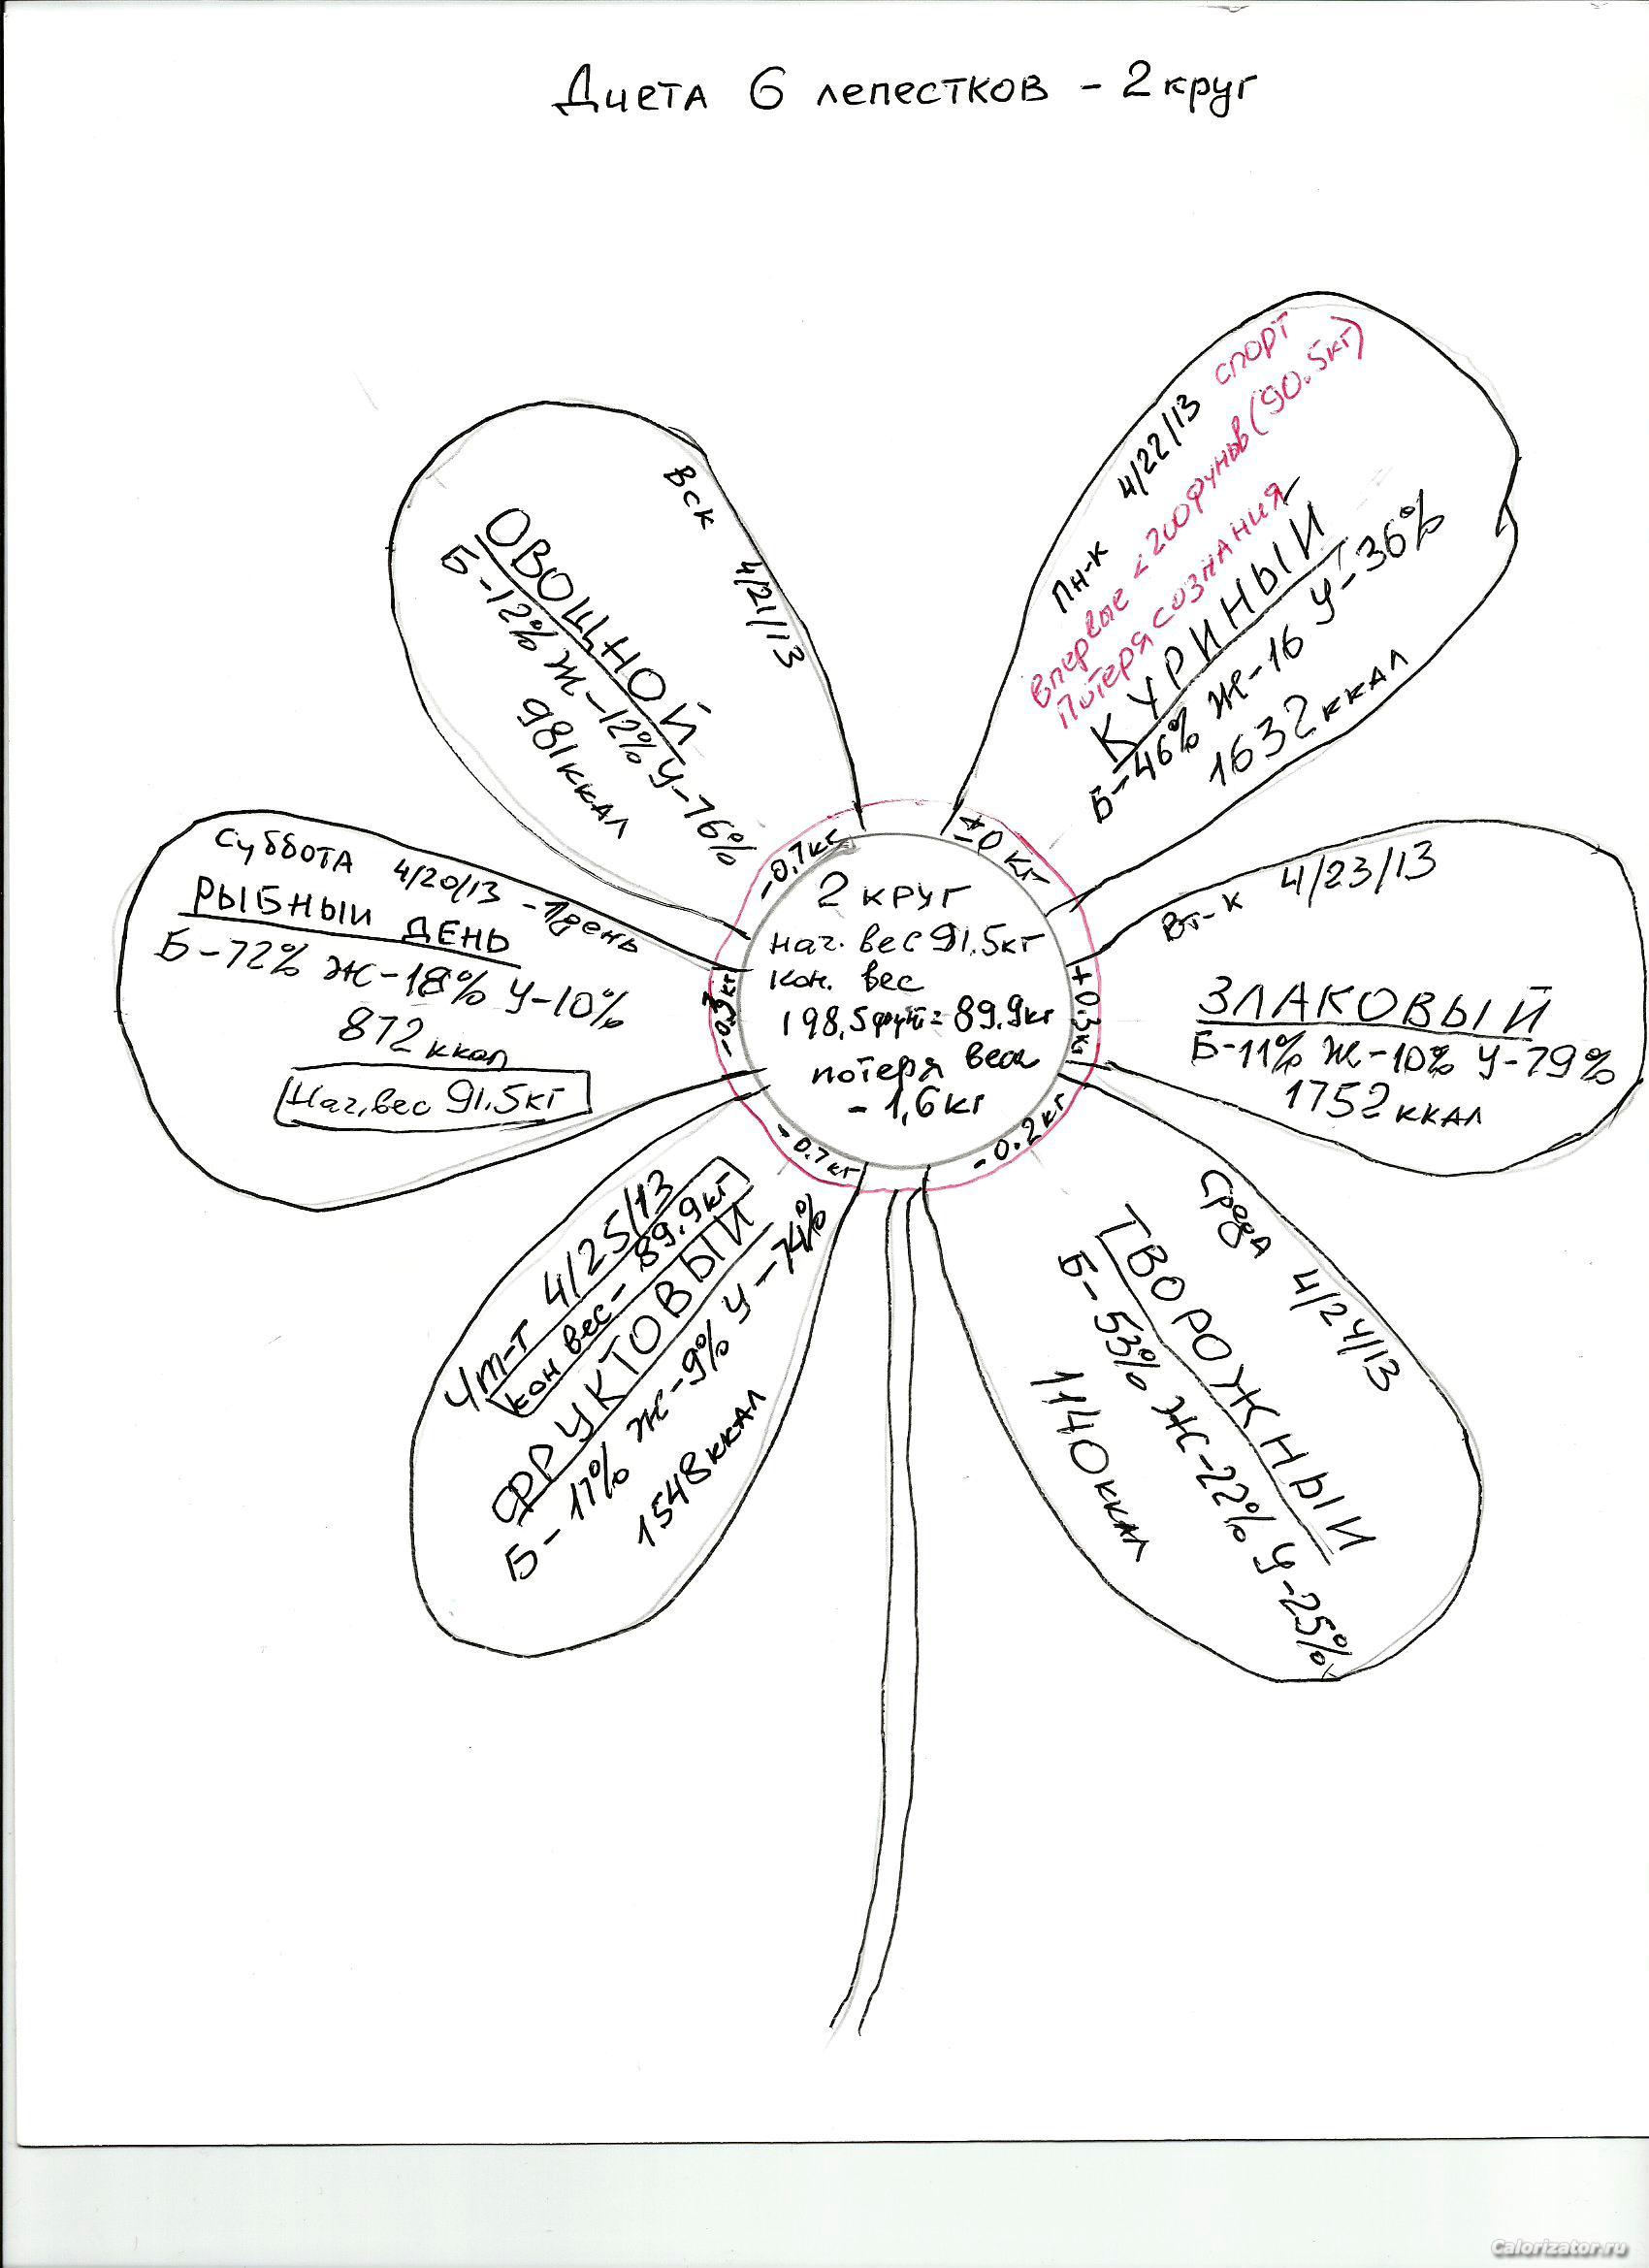 Диета 6 лепестков - 2 круг
вск 4/21/13
ОВОЩНОЙ
Б-12% Ж-12% У-76%
981 ккал
Пн-к 4/22/13 спорт
впервые < 200 фунтов (90.5кг)
Потеря сознания
КУРИНЫЙ
Б-46% Ж-16 У-36%
1632 ккал
Суббота 4/20/13 - 1 день
РЫБНЫЙ ДЕНЬ
Б-72% Ж-18% У-10%
872 ккал
Нач. вес 91.5кг
Вт-к 4/23/13
ЗЛАКОВЫЙ
Б-11% Ж-10% У-79%
1752 ккал
-0.7кг
±0 кг
+0.3кг
-0.2кг
-0.7кг
2 круг
нач. вес 91.5кг
кон. вес
198,5фунт=89.9кг
потеря веса
- 1,6 кг
Чт-г 4/25/13
кон вес - 89.9кг
ФРУКТОВЫЙ
Б-17% Ж-9% У-74%
1548 ккал
Среда 4/24/13
ТВОРОЖНЫЙ
Б-53% Ж-22% У-25%
1140 ккал
Calorizator.ru